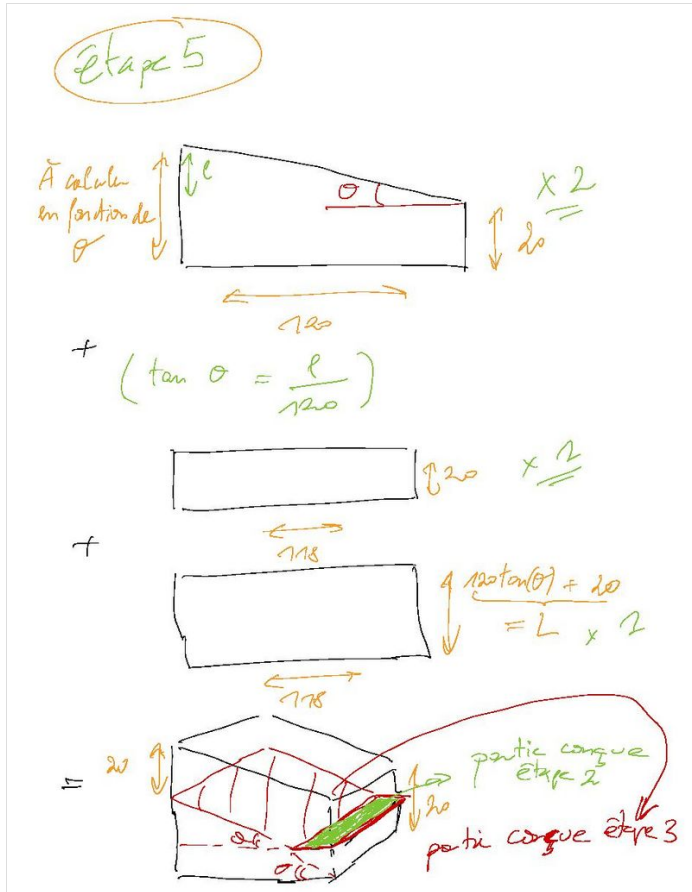 étape 5
À calculer
en fonction de
θ
l
θ
x 2
20
120
+
( tan θ = l / 120 )
20
x 1
118
+
120 tan(θ) + 20
= L x 1
118
=
20
partie conçue
étape 2
20
partie conçue étape 3